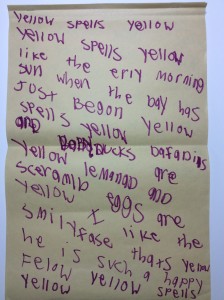 yellow spells yellow
yellow spells yellow
like the erly morning
sun when the day has
Just begon yellow
spells yellow
and ducks
yellow lemanad are
scerambl and
yellow eggs are
I like the
smilyfase thats yellow
he is such a happy
felow
yellow yellow spells